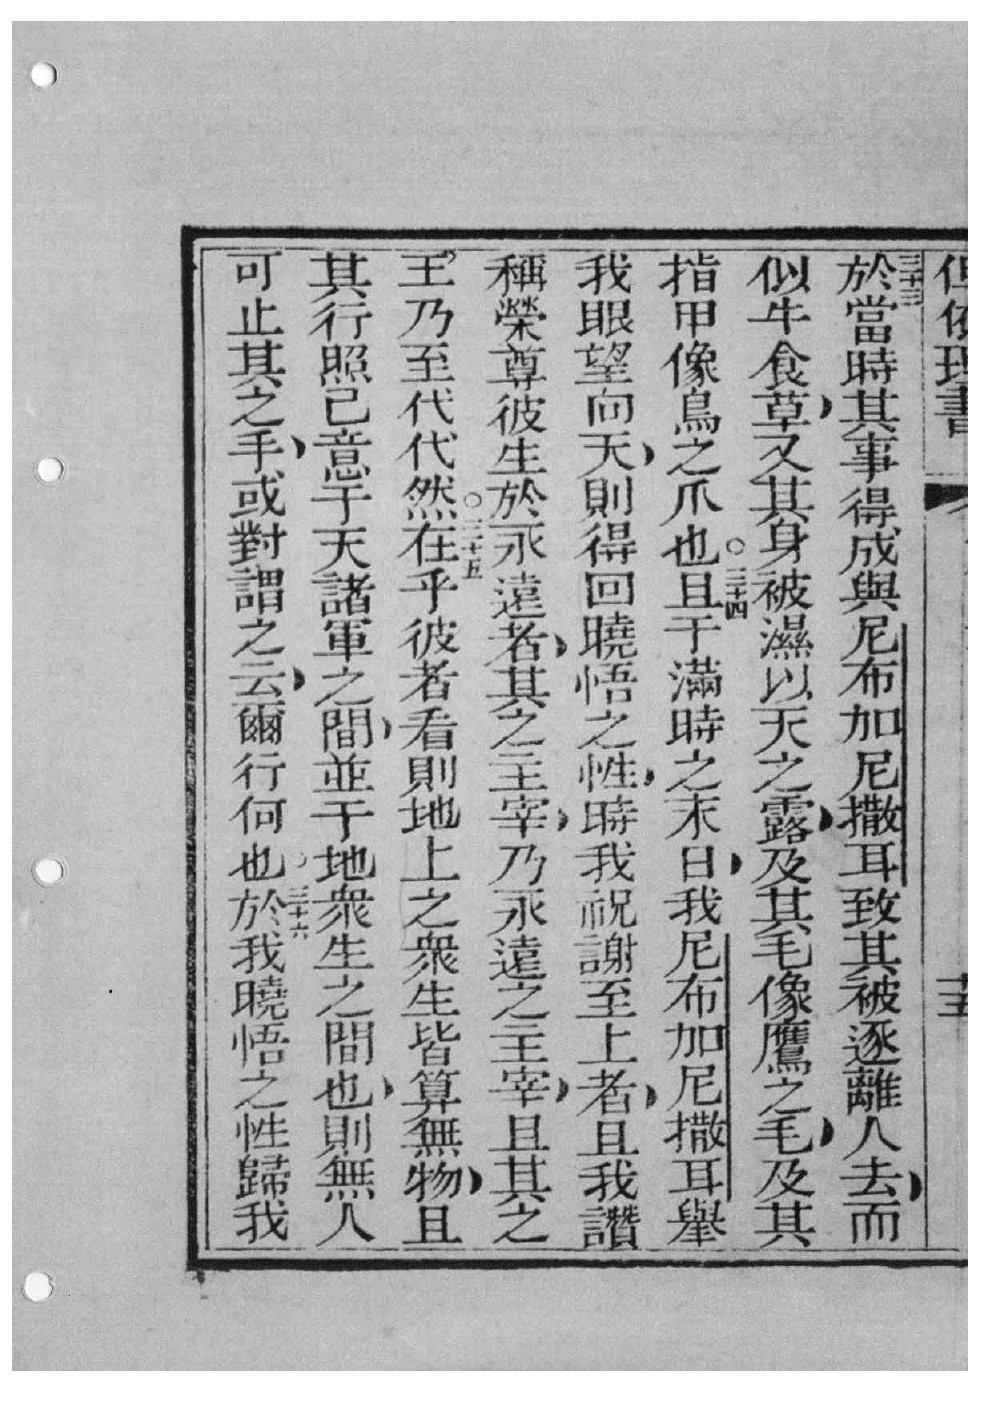 但依理書 十五
三十三於當時其事得成與尼布加尼撒耳致其被逐離人去而
似牛食草又其身被濕以天之露及其毛像鷹之毛及其
指甲像鳥之爪也○三十四且于滿時之末日我尼布加尼撒耳舉
我眼望向天則得回曉悟之性時我祝謝至上者且我讚
稱榮尊彼生於永遠者其之主宰乃永遠之主宰且其之
王乃至代代然○三十五在乎彼者看則地上之衆生皆算無物且
其行照己意于天諸軍之間並于地衆生之間也則無人
可止其之手或對謂之云爾行何也○三十六於我曉悟之性歸我